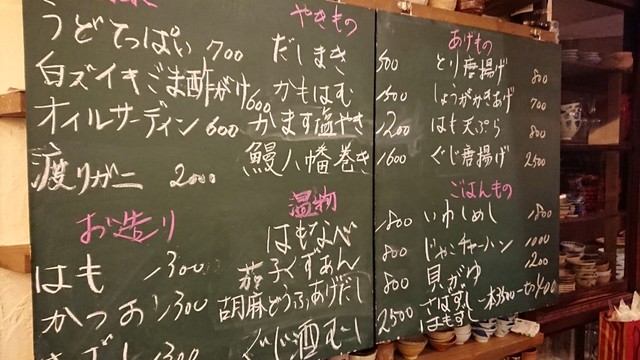 うどてっぱい 700
白ズイキごま酢がけ 600
オイルサーディン 600
渡りガニ 2000
お造り
はも 1300
かつお 1300
やきもの
だしまき 500
かもはむ 1500
かます塩やき 1200
鰻八幡巻き 1600
温物
はもなべ 1800
茄子くずあん 800
胡麻どうふあげだし 800
ぐじ酒むし 2500
あげもの
とり唐揚げ 800
しょうがかきあげ 700
はも天ぷら 800
ぐじ唐揚げ 2500
ごはんもの
いわしめし 1800
じゃこチャーハン 1000
貝がゆ 1200
さばずし 一本3500
はもずし